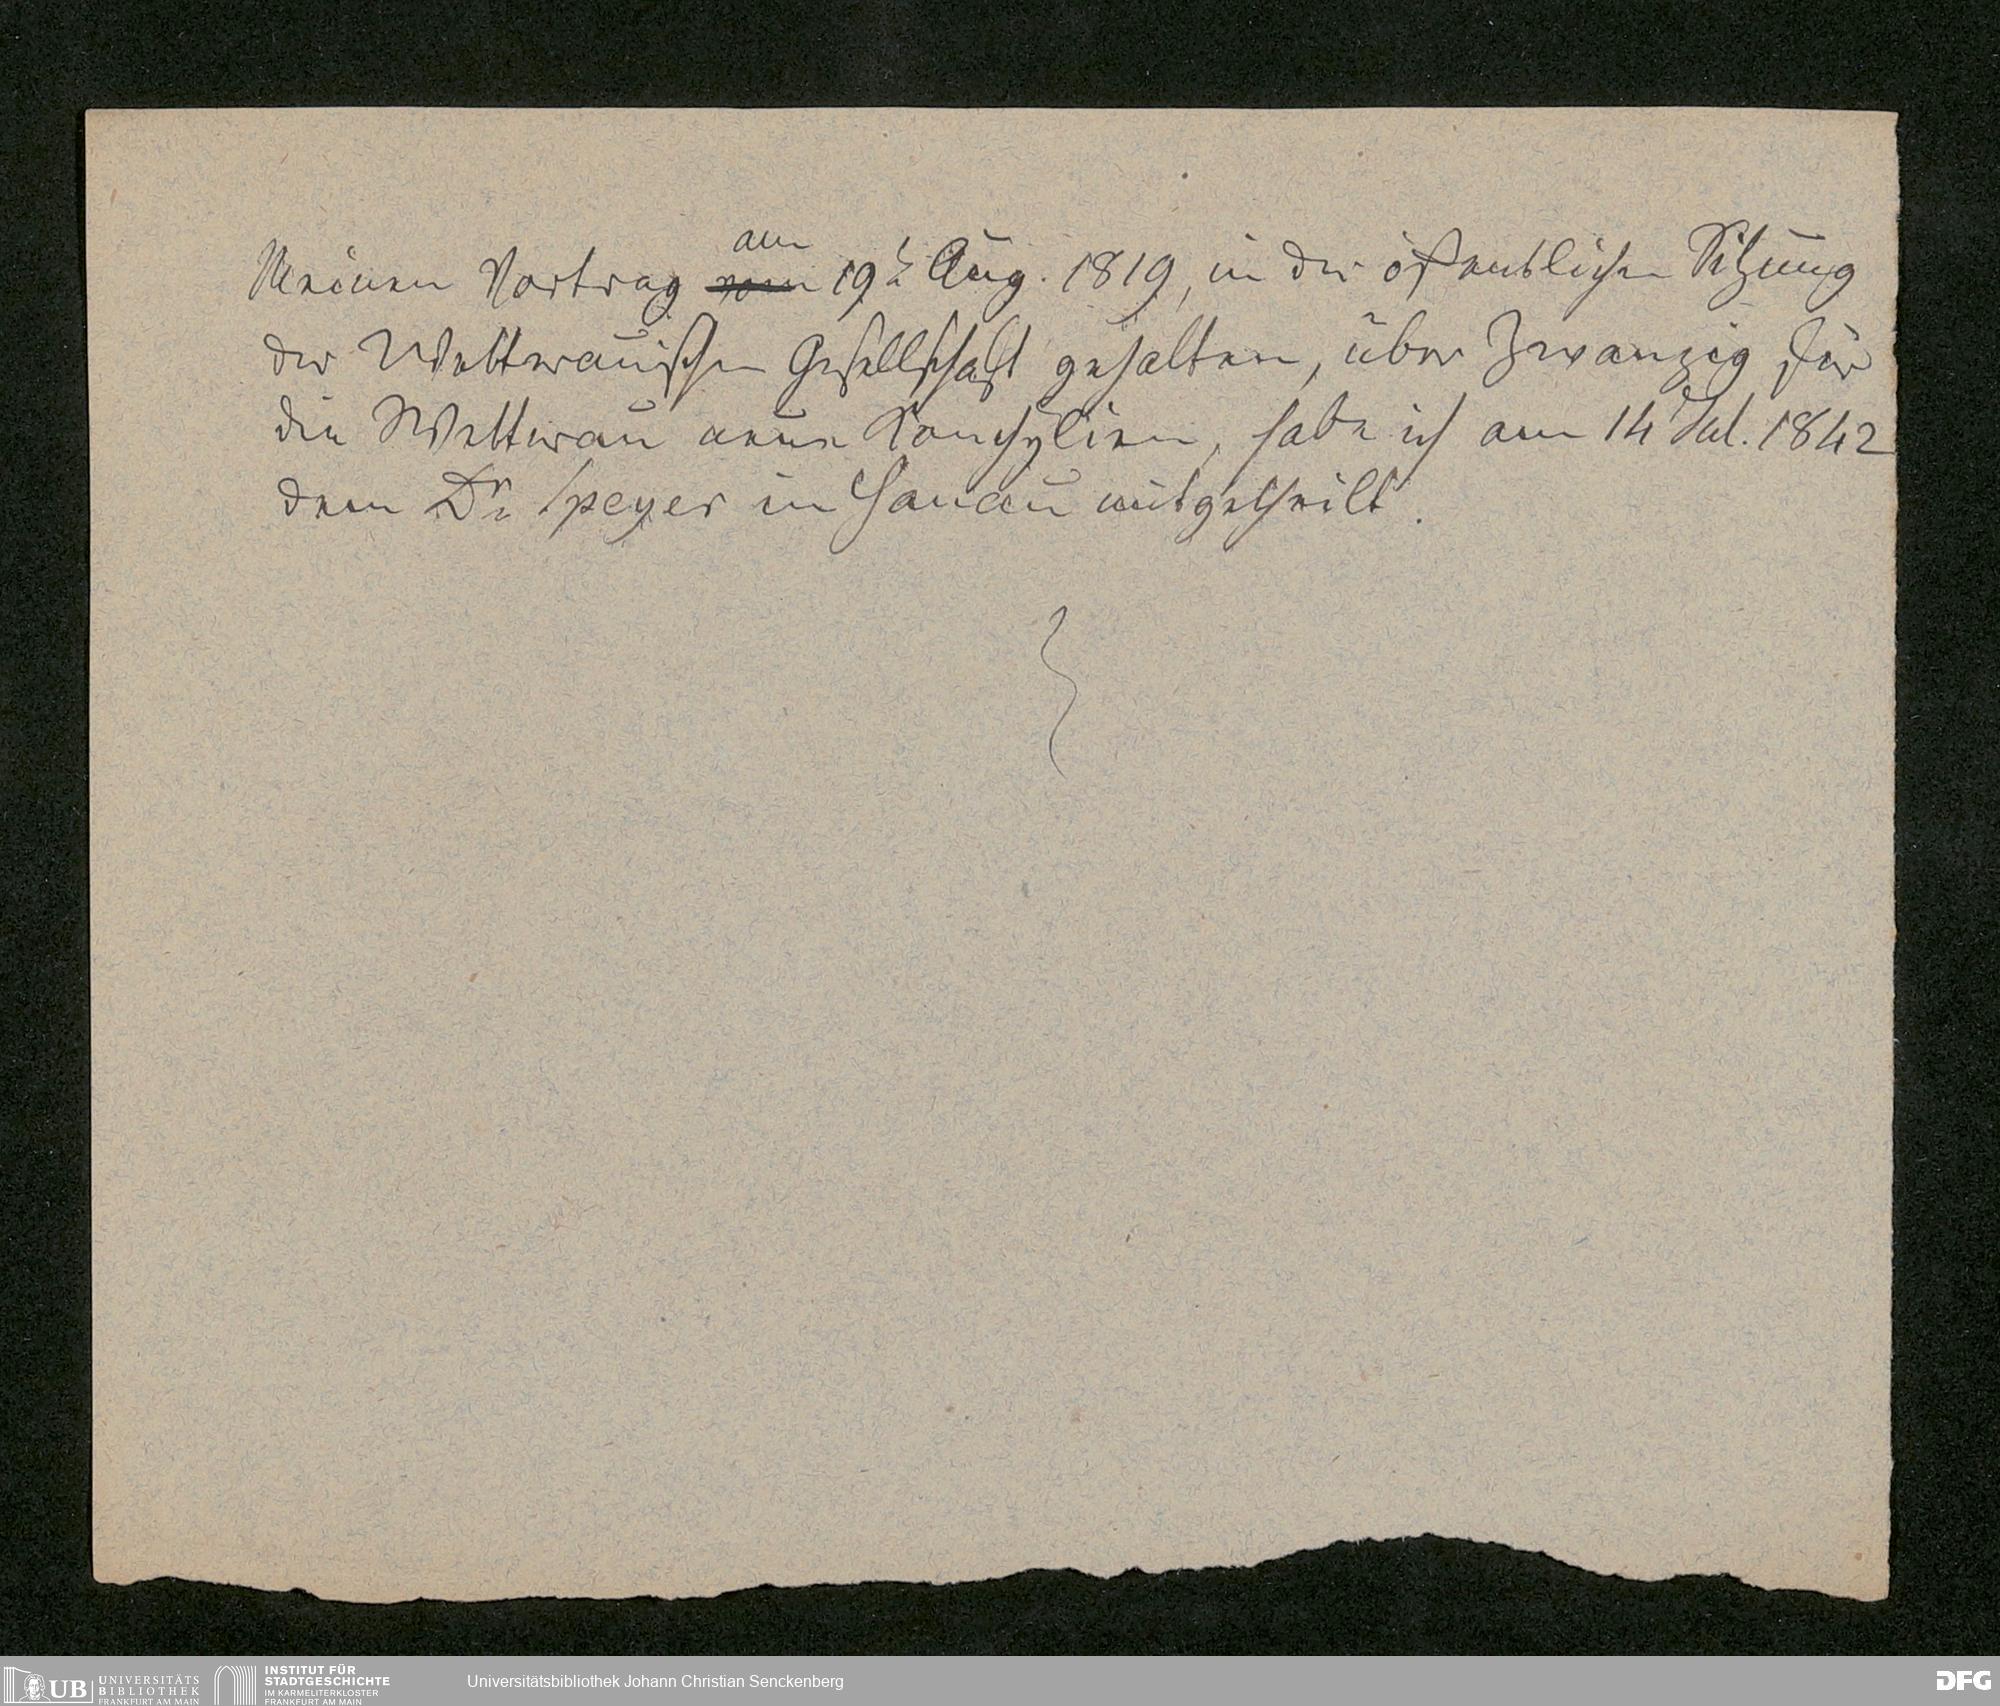 am
Meinen Vortrag vom 19t. Aug. 1819, in der öffentlichen Sitzung
der Wetterauischen Gesellschaft gehalten, über Zwanzig für
die Wetterau neue Konchylien, habe ich am 14 Jul. 1842
dem Dr. Speyer in Hanau mitgetheilt.
UB UNIVERSITÄTS BIBLIOTHEK FRANKFURT AM MAIN
INSTITUT FÜR STADTGESCHICHTE IM KARMELITERKLOSTER FRANKFURT AM MAIN
Universitätsbibliothek Johann Christian Senckenberg
DFG